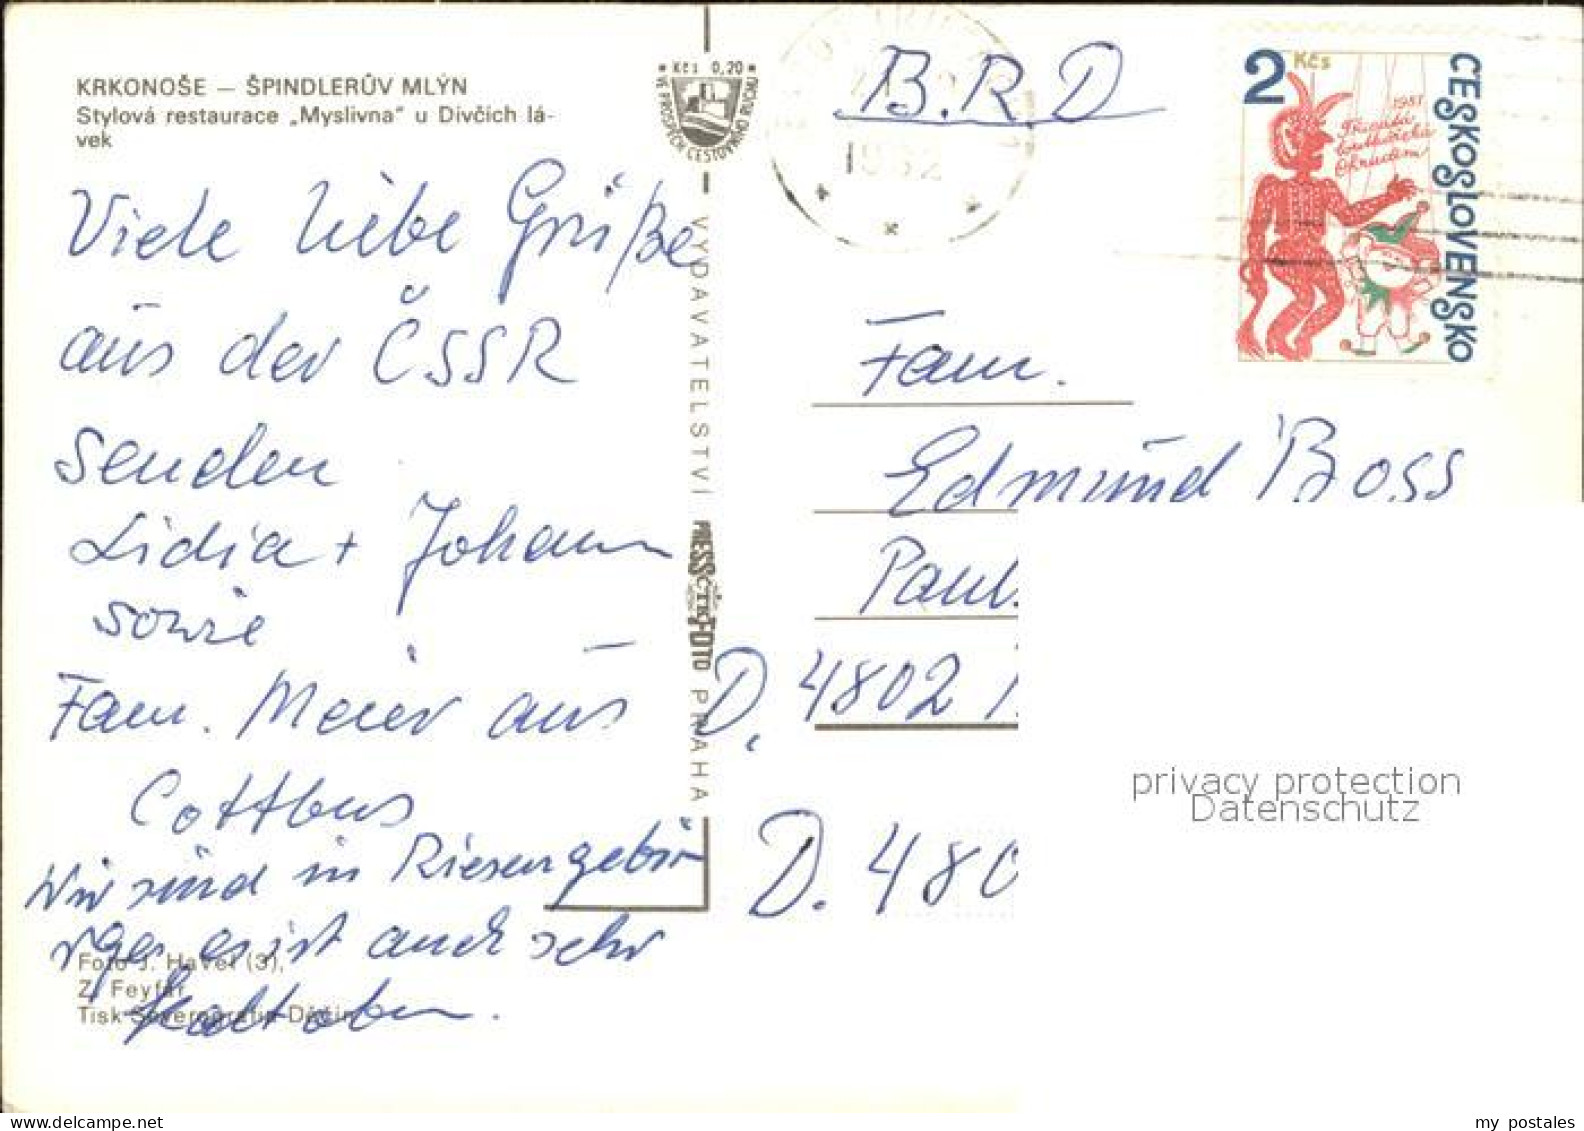 KRKONOŠE – ŠPINDLERŮV MLÝN
Stylová restaurace „Myslivna" u Dívčích lá-
vek
Viele liebe Grüße
aus der ČSSR
senden
Lidia + Johann
sowie
Fam. Meier aus
Cottbus
Wir sind in Riesengebir
rges es ist auch sehr
kalt oben.
Foto J. Havel (3),
Z. Feyfar
Tisk Severografia Děčín
* Kčs 0,20 *
VE PROSPĚCH CESTOVNÍHO RUCHU
VYDAVATELSTVÍ PRESSFOTO PRAHA
ČTK
1982
B.R.D
2 Kčs
1981
ČESKOSLOVENSKO
Fam.
Edmund Boss
Paul.
D. 4802
D. 480
privacy protection
Datenschutz
my postales
www.delcampe.net